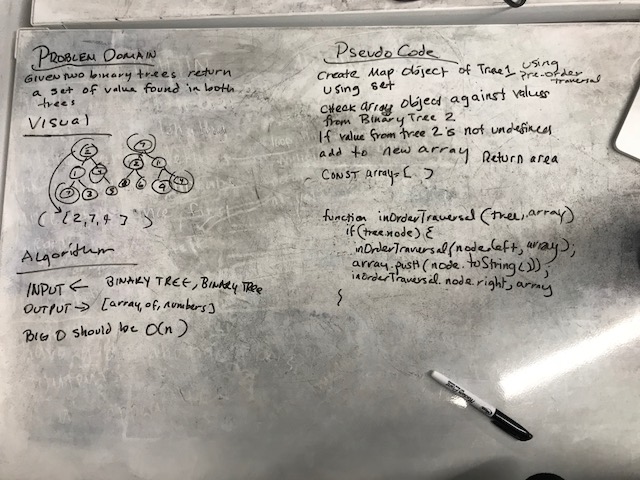 PROBLEM DOMAIN
Given two binary trees return
a set of value found in both
trees
Visual
2
1
7
3
5
7
2
11
8
6
9
4
( [2,7,4] )
Algorithm
INPUT ← BINARY TREE, BINARY TREE
OUTPUT → [array, of, numbers]
BIG O should be O(n)
Pseudo Code
Create Map Object of Tree1 using
Pre-order
traversal
using set
check array object against values
from Binary Tree 2
If value from tree 2 is not undefined
add to new array Return area
CONST array = [ ]
function inOrderTraversal (tree, array)
if (tree.node) {
inOrderTraversal(node.left, array);
array.push(node.toString());
inOrderTraversal.node.right, array
}